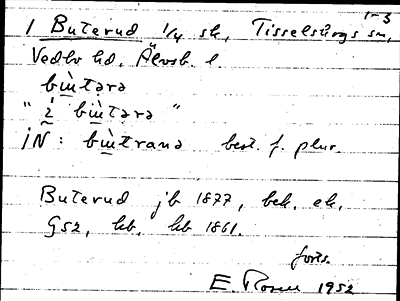 1-3
1 Buterud 1/4 sk, Tisselskogs sn,
Vedbo hd. Älvsb. l.
bʉ̀tərə
" i bʉ̀tərə "
iN: bʉ̀tranə best. f. plur.
Buterud jb 1877, bek. ek.
G52, kb. kb 1861.
forts.
E. Rosen 1952